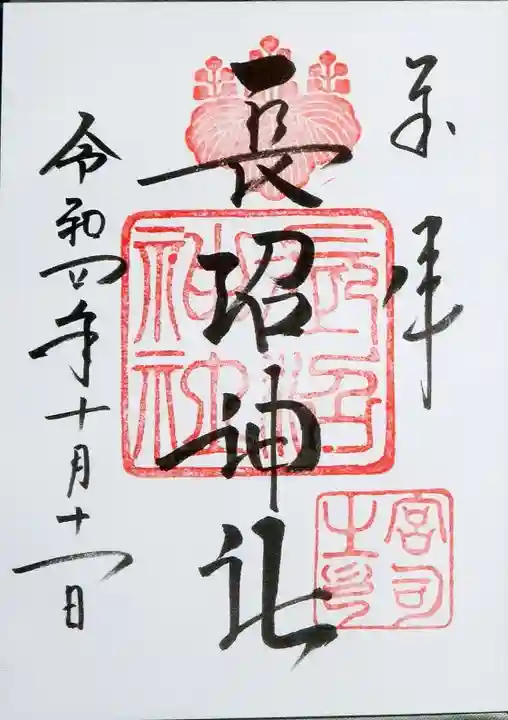 奉拝
長沼神社
長沼神社
宮司之印
令和四年十月十一日